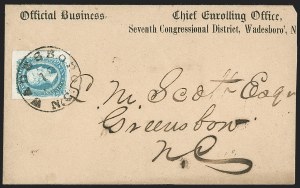 Official Business. Chief Enrolling Office,
Seventh Congressional District, Wadesboro', N
WADESBORO N.C.
C. M. Scott Esqr
Greensboro
NC